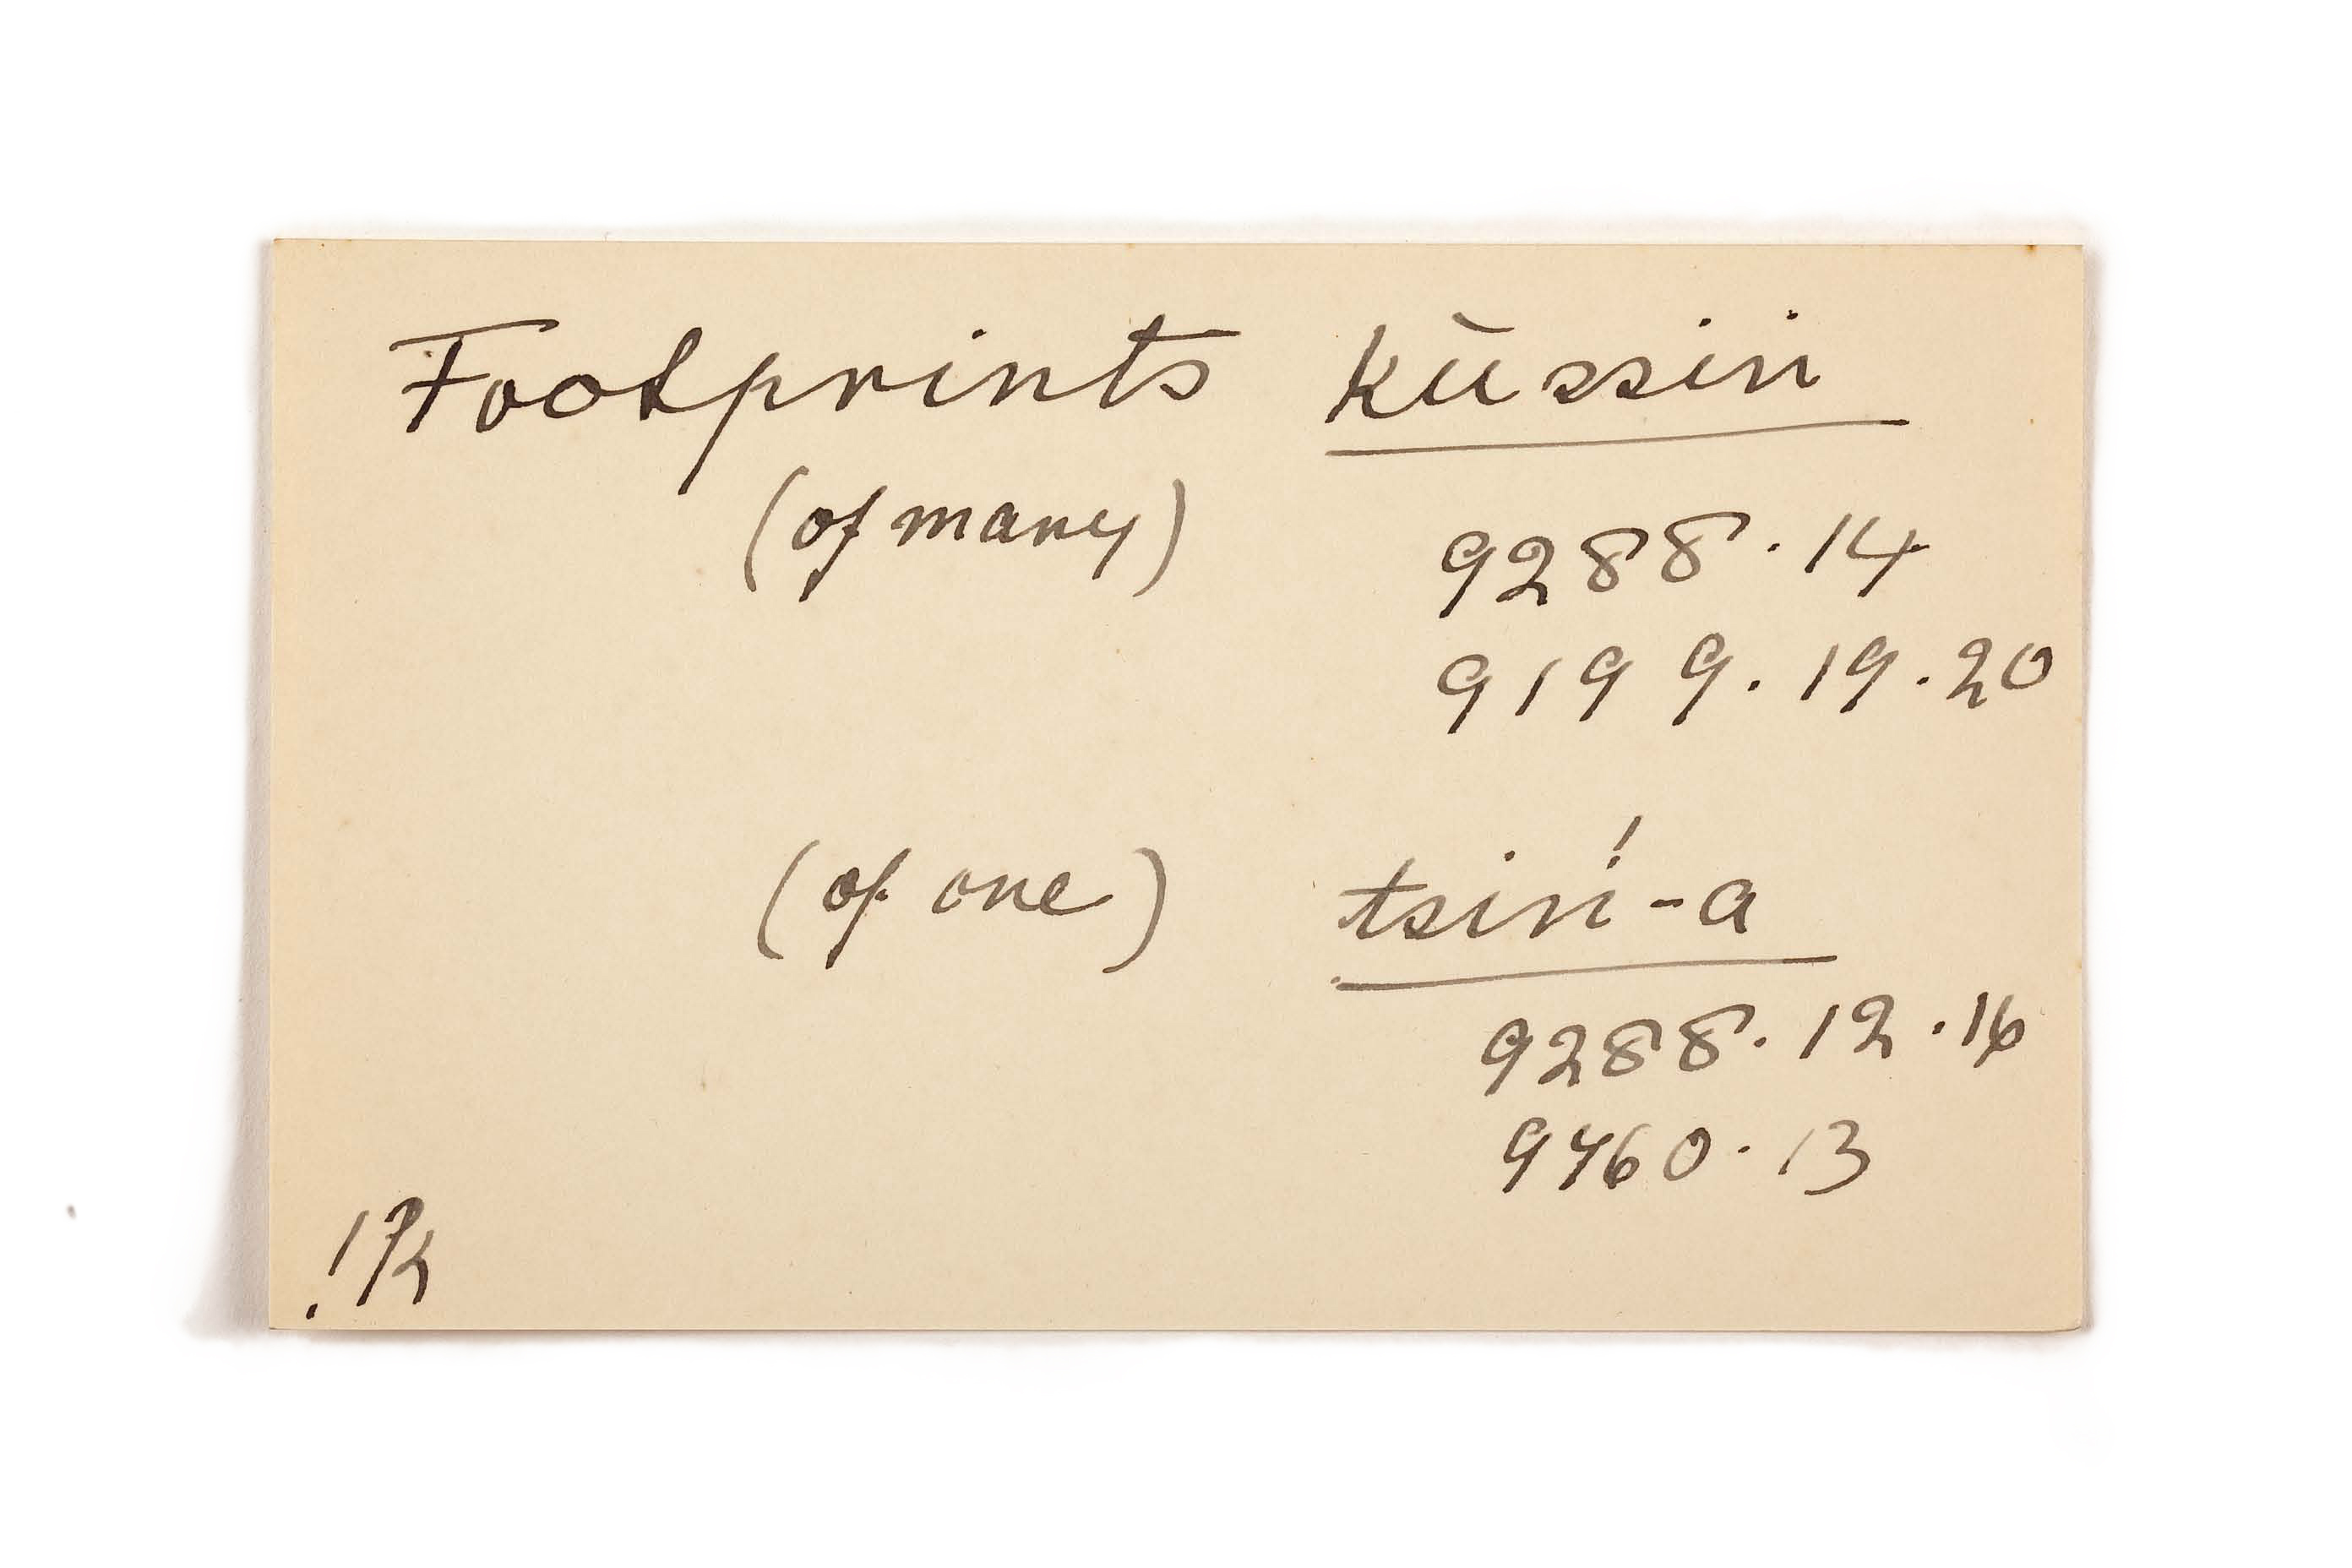 Footprints kūssiṅ
(of many)
9288.14
9199.19.20
(of one) tsiṅ́-a
9288.12.16
9460.13